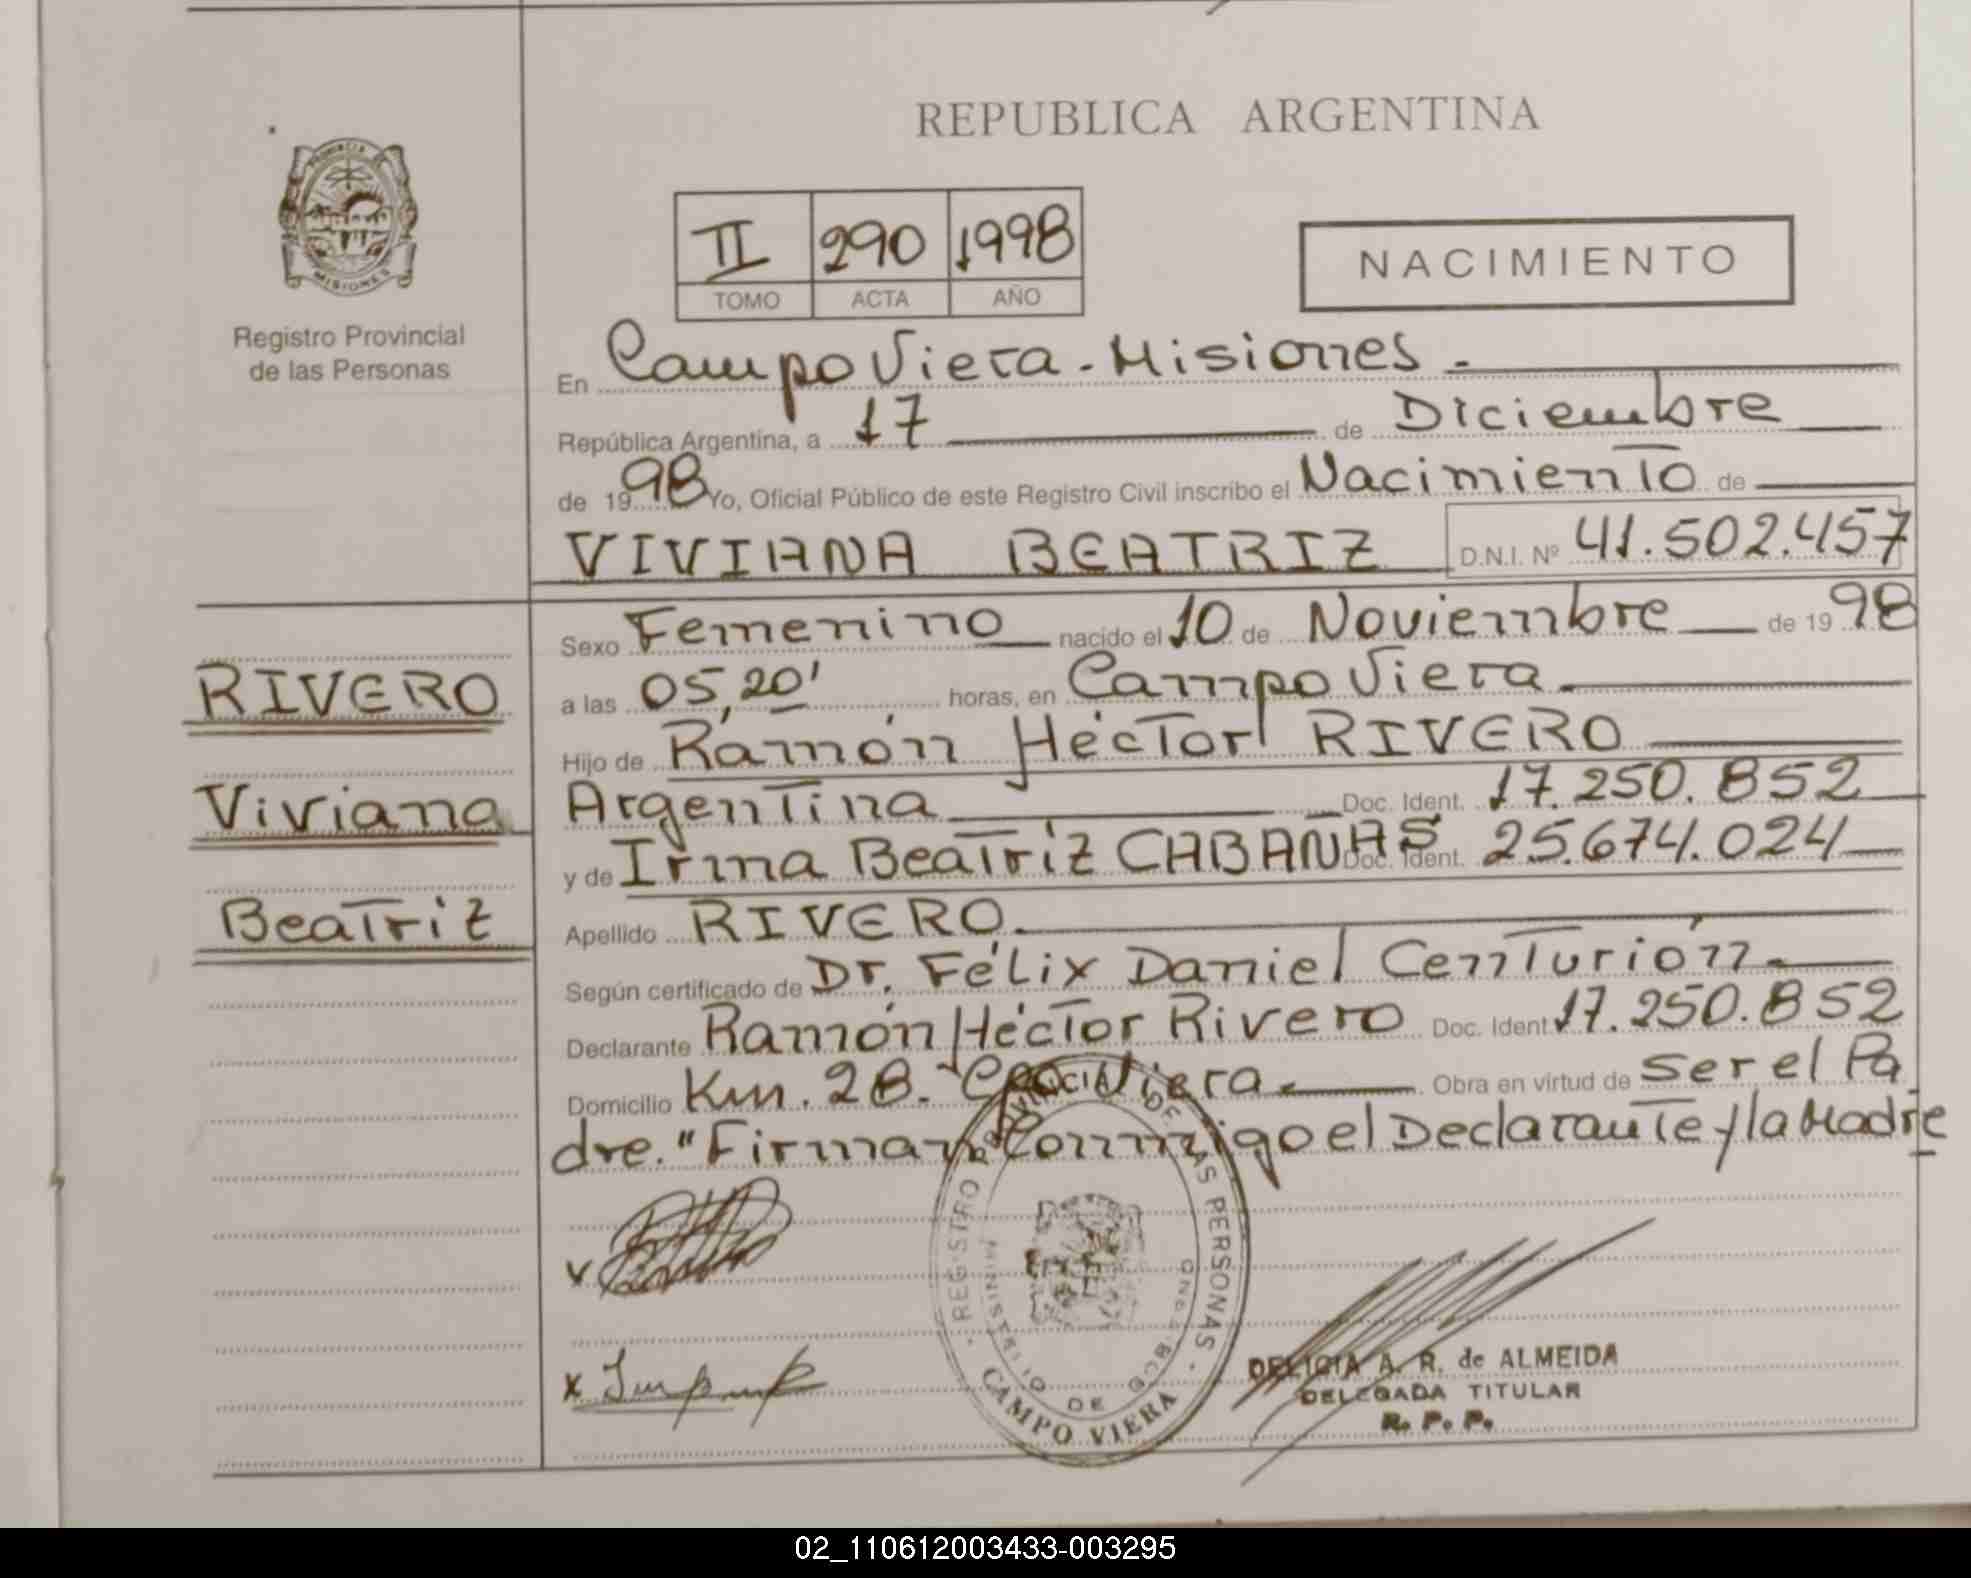 REPUBLICA ARGENTINA
PROVINCIA DE
MISIONES
Registro Provincial
de las Personas
II 290 1998
TOMO ACTA AÑO
NACIMIENTO
En Campo Viera - Misiones -
República Argentina, a 17 de Diciembre
de 1998 Yo, Oficial Público de este Registro Civil inscribo el Nacimiento de
VIVIANA BEATRIZ D.N.I. Nº 41.502.457
RIVERO
Viviana
Beatriz
Sexo Femenino nacido el 10 de Noviembre de 1998
a las 05,20' horas, en Campo Viera
Hijo de Ramón Héctor RIVERO
Argentina Doc. Ident. 17.250.852
y de Irma Beatriz CABAÑAS Doc. Ident. 25.674.024
Apellido RIVERO
Según certificado de Dr. Félix Daniel Centurión
Declarante Ramón Héctor Rivero Doc. Ident. 17.250.852
Domicilio Km. 28. Cpo Viera Obra en virtud de ser el Pa
dre. "Firman Conmigo el Declarante y la Madre
REGISTRO PROVINCIAL DE LAS PERSONAS
MINISTERIO DE GOB.
CAMPO VIERA
DELICIA A. R. de ALMEIDA
DELEGADA TITULAR
R. P. P.
02_110612003433-003295